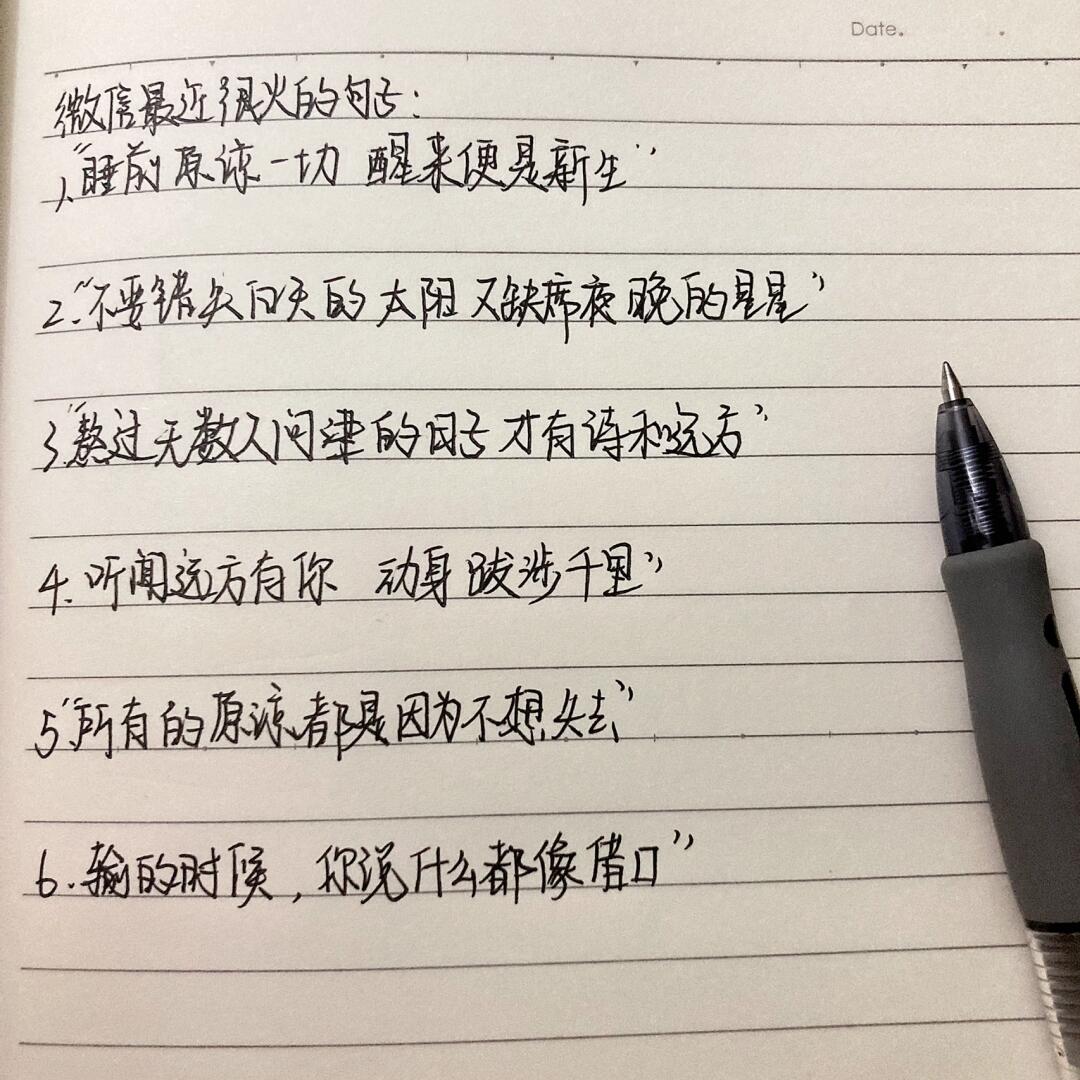 Date.
微信最近很火的句子：
1、“睡前原谅一切 醒来便是新生”
2.“不要错失白天的太阳 又缺席夜晚的星星”
3“熬过无数人问津的日子 才有诗和远方”
4.听闻远方有你 动身跋涉千里”
5“所有的原谅都是因为不想失去”
6.输的时候，你说什么都像借口”